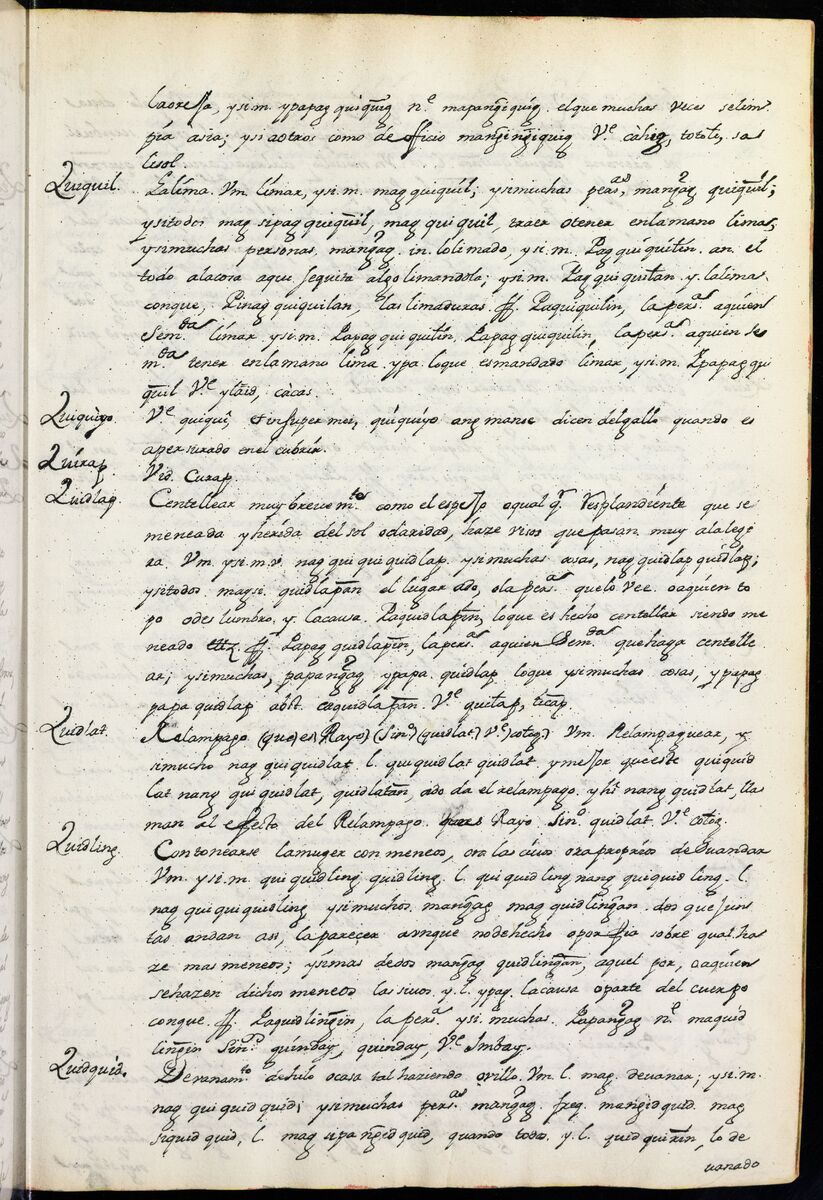 la oreja, y si.m. ypapag quiquig n.e mapangiquig. el que muchas veces selim
pia assia; y si aotros como de officio mangingiquig V.e càlig, totoli, sa
lisol.
Quiquil. La lima. Vm. limar, y si.m. mag quiquil; y si muchas per.as mangag quiquil;
y sitodos mag sipag quiquil, mag quiquil, traer otener enlamano limas,
y si muchas personas. mangag. in. lo limado, y si.m. Pag quiquilin. an. el
todo ala cosa aqui sequita algo limandola; y si.m. Pag quiquilan. y. la lima
conque, Pinag quiquilan, las limaduras. ff. Paquiquilin, la pers.a aquien
Sem.da limar y si.m. Papag quiquilin, Papag quiquilin, la pers.a aquien se
m.da tener enlamano lima. ypa. loque es mandado limar, y si.m. Ypapag qui
quil V.e ylaid, càcas.
Quiquiyo. V.e quiqui, quiquiyo ang manuc dicen del gallo quando es
apersurado en el cubrir.
Quirap. Vid. Curap.
Quidlap. Centellear muy breve m.te como el espejo o qual q.r resplandiente que se
meneada y herida del sol o claridad, haze visos que pasan muy ala lige
ra. Vm. y si.m. v. nag qui quiquidlap. y si muchas cosas, nag quidlap quidlap;
y sitodos. magsi. quidlapan el lugar ado, ola pers.a quelo vee. o aquien to
po o deslumbro. y. la causa. Paquidlapin, loque es hecho centellar siendo me
neado ff. Papag quidlapin, la pers.a aquien Sem.da que haga centelle
ar; y si muchas, papangag ypapa. quidlap loque y si muchas cosas, y papag
papa quidlap abst. caquidlapan. V.e quilap, ticap.
Quidlat. Relampago (que) es Rayo) (Sin.o) (quidlat) V.e) Vm. Relampaguear, y
si mucho nag qui quidlat. l. qui quidlat quidlat, y mejor que este quiquid
lat nang qui quidlat, quidlatan, ado da el relampago. y hi nang quidlat, lla
man al efecto del Relampago. Rayo Sin.o quidlat V.e
Quidling. Contonearse la muger con meneos, ora lascivos ora proprios de su andar
Vm. y si.m. qui quidling quidling. l. qui quidling nang quiquid ling. l.
nag qui quiquidling y si muchos. mangag mag quidlingan. dos que jun
tas andan asi, la parecer aunque no de hecho o por fia sobre qual ha
ze mas meneos; y si mas de dos mangag quidlingan, aquel por, o aquien
sehazen dichos meneos lascivos. y. l. ypag. la causa o parte del cuerpo
conque. ff. Paquidlingin, la pers.a y si muchas. Papangag n.e maquid
lingin Sin.o quinday, quenday, V.e Imbay.
Quidquid. Devanam.to de hilo o cosa tal haziendo ovillo. Vm. l. mag. devanar; y si.m.
nag qui quid quid; y si muchas pers.as mangag. freq. mangid quid. mag
siquid quid, l. mag sipangid quid, quando todos. y. l. quid quirin, lo de
vanado